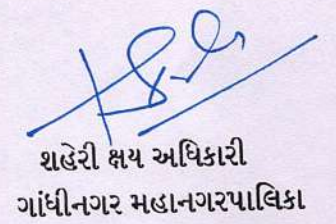 શહેરી ક્ષય અધિકારી
ગાંધીનગર મહાનગરપાલિકા